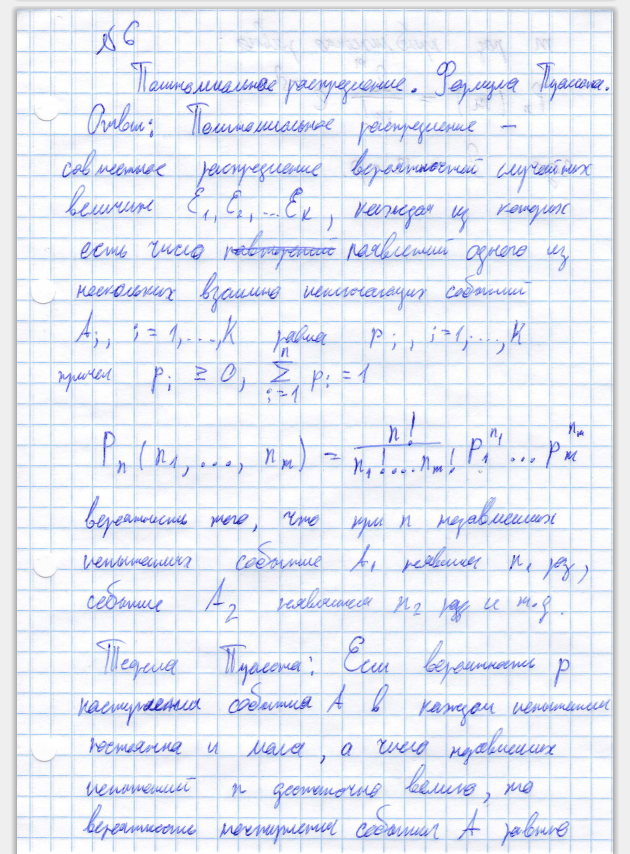 №6
Полиномиальное распределение. Формула Пуассона.
Ответ: Полиномиальное распределение —
совместное распределение вероятностей случайных
величин ξ1, ξ2, ... ξк, каждая из которых
есть число появлений одного из
нескольких взаимно исключающих событий
Ai, i = 1,...,K равна pi, i=1,...,K
причем pi ≥ 0, ∑ⁿᵢ₌₁ pi = 1
Pn (n1, ..., nm) = n! / (n1! ... nm!) p1^n1 ... pm^nm
вероятность того, что при n независимых
испытаниях событие A1 появится n1 раз,
событие A2 появится n2 раз и т.д.
Теорема Пуассона: Если вероятность p
наступления события A в каждом испытании
постоянна и мала, а число независимых
испытаний n достаточно велико, то
вероятность наступления события A равно